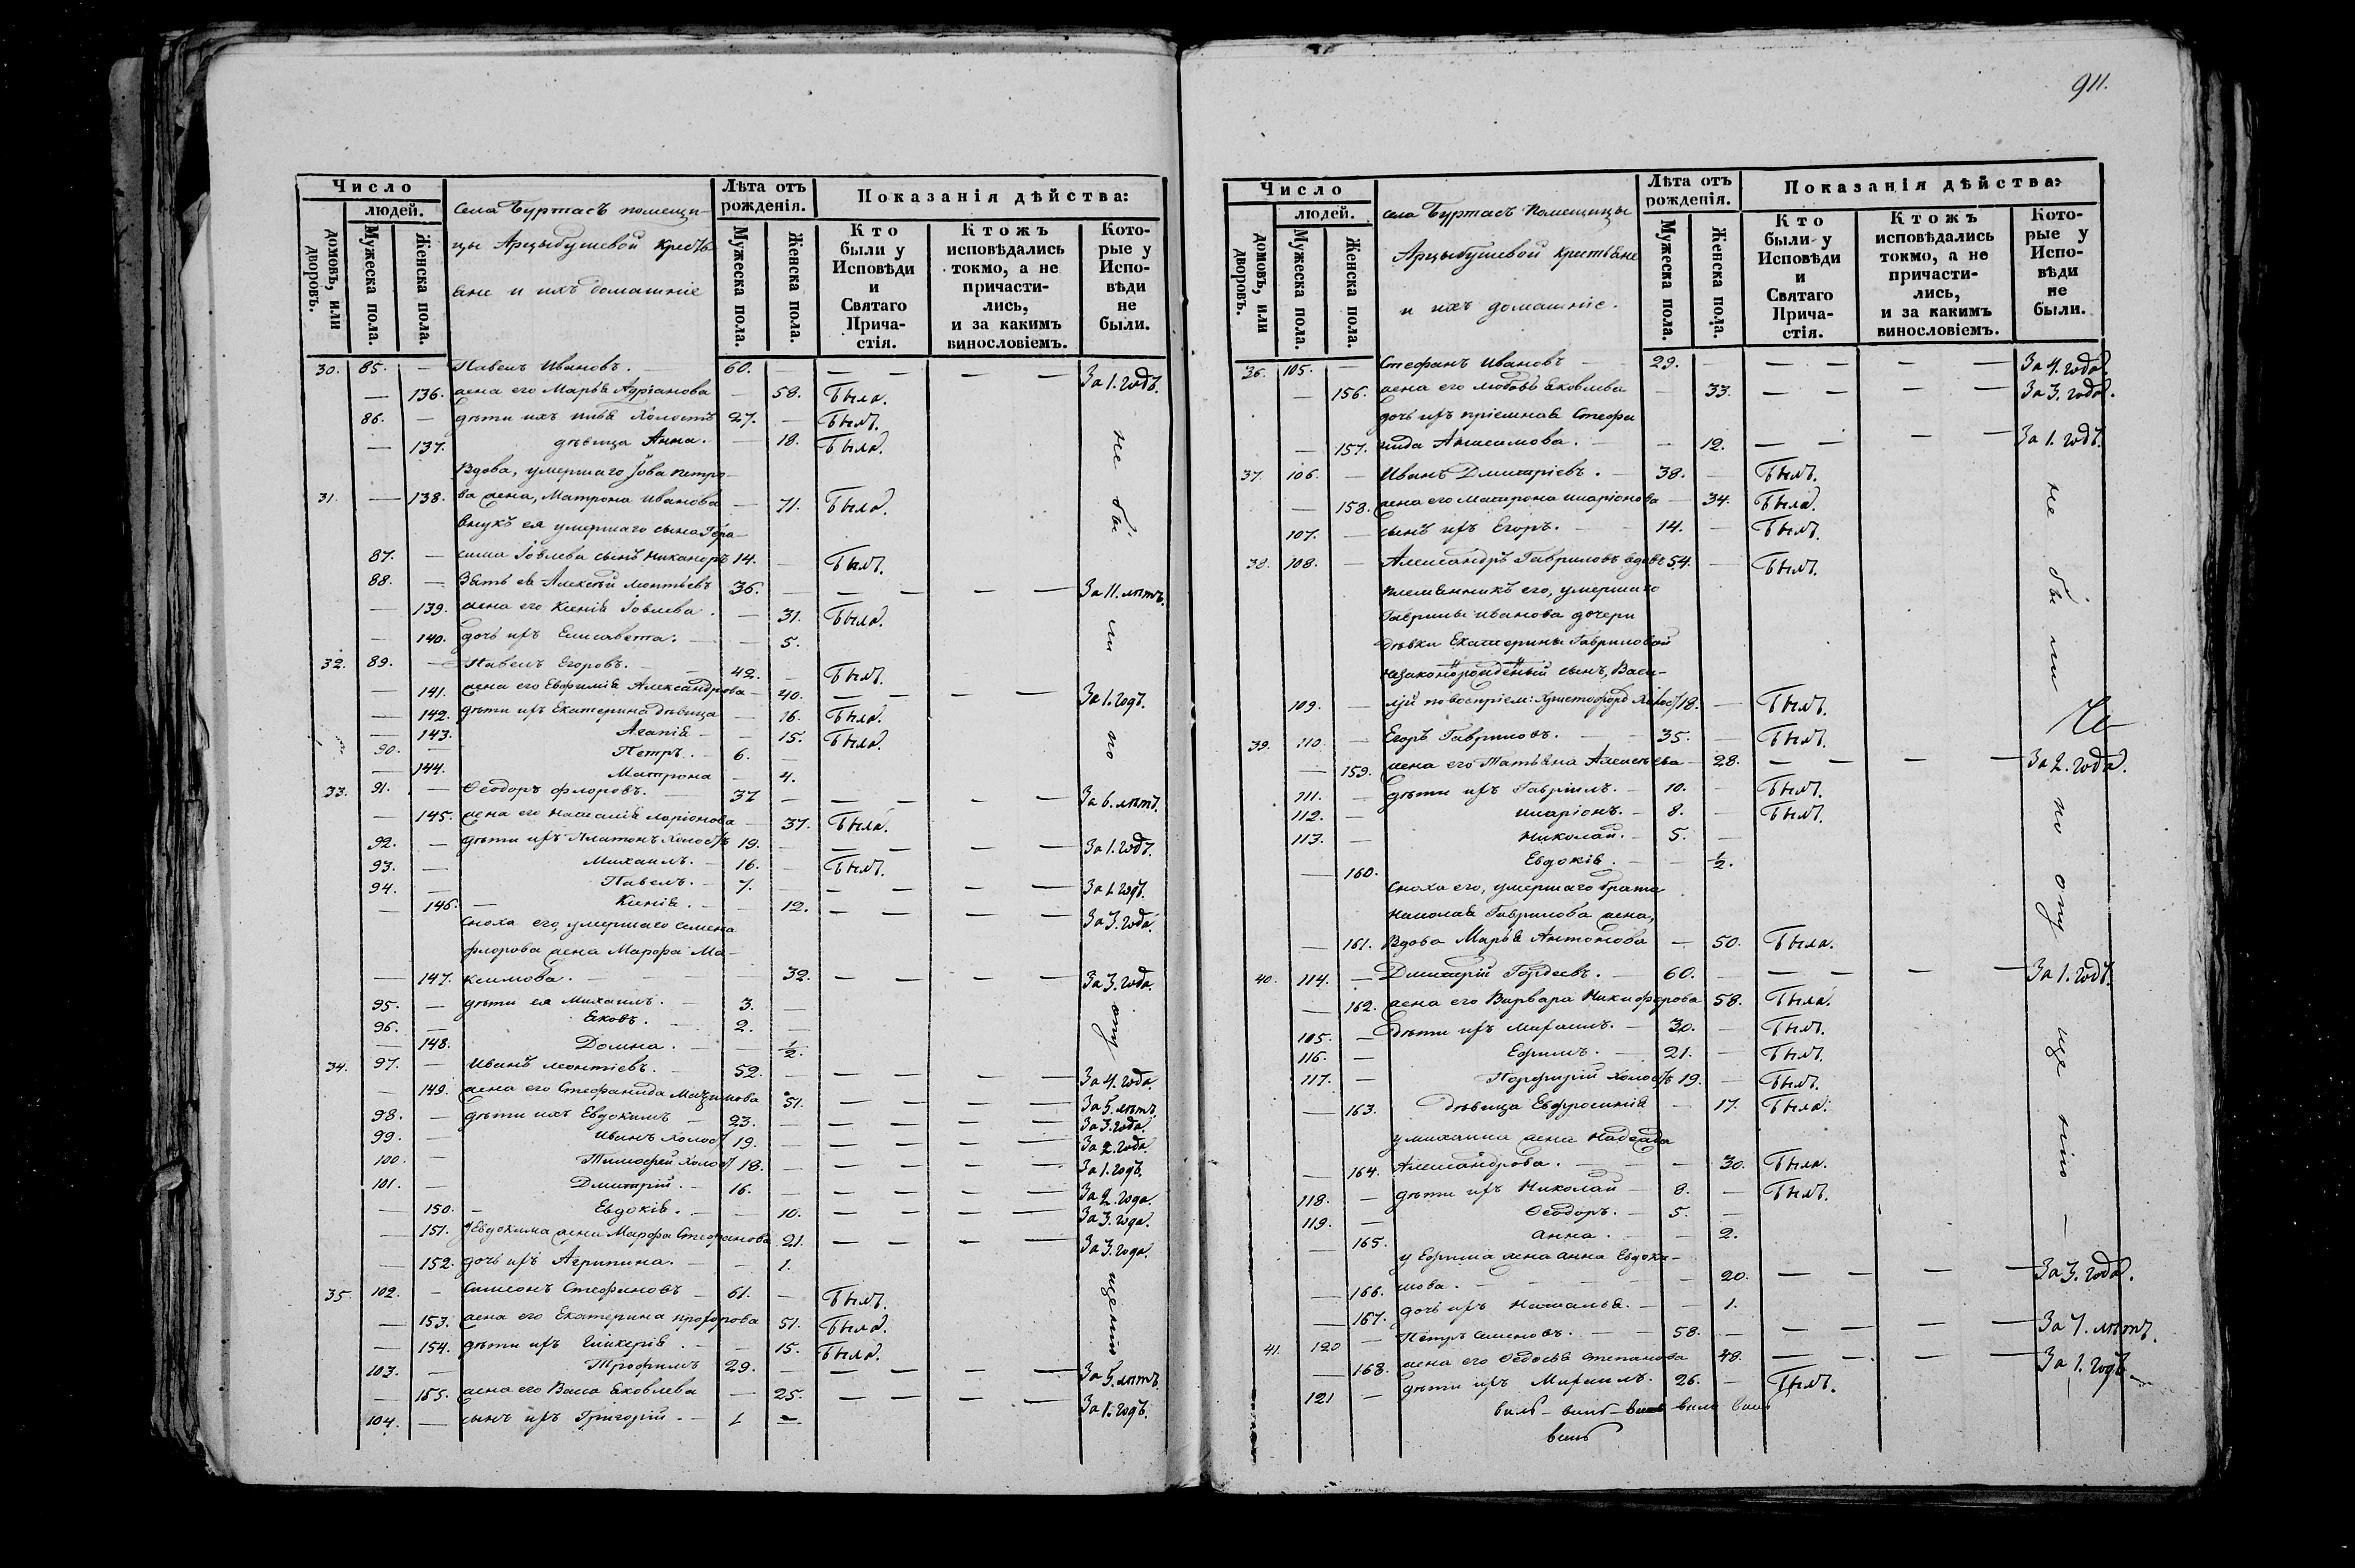 911.
Число
людей.
домовъ, или дворовъ.
Мужеска пола.
Женска пола.
Села Буртасъ помещи-
цы Арцыбушевой крестъ-
яне и ихъ домашніе
Лѣта отъ рожденія.
Мужеска пола.
Женска пола.
Показанія дѣйства:
Кто были у Исповѣди и Святаго Прича- стія.
Ктожъ исповѣдались токмо, а не причасти- лись, и за какимъ винословіемъ.
Кото- рые у Испо- вѣди не были.
30. 85. — Павелъ Ивановъ. 60. — — — — За 1. годъ.
— 136. жена его Марья Адріанова — 58. Была.
86. — дѣти ихъ Илья Холостъ 27. — Былъ.
— 137. дѣвица Анна. — 18. Была.
Вдова, умершаго Іова Петро-
31. — 138. ва жена, Матрона Иванова — 71. Была.
внукъ ея умершаго сына Гера-
87. — сима Іовлева сынъ Никаноръ 14. — Былъ.
88. — Зять ея Алексѣй Леонтьевъ 36. — — — — За 11. лѣтъ.
— 139. жена его Ксенія Іовлева. — 31. Была.
— 140. дочь ихъ Елисавета. — 5.
32. 89. — Павелъ Егоровъ. — 42. — Былъ.
— 141. жена его Евфимія Александрова — 40. — — — — За 1. годъ.
— 142. дѣти ихъ Екатерина дѣвица — 16. Была.
— 143. Агапія — — 15. Была.
90. — Петръ. — 6. —
— 144. Матрона — 4.
33. 91. — Ѳеодоръ Флоровъ. — 37 — — — — За 6. лѣтъ.
— 145. жена его Наталія Ларіонова — 37. Была.
92. — дѣти ихъ Платонъ Холостъ 19. — — — — За 1. годъ.
93. — Михаилъ. — 16. — Былъ.
94. — Павелъ. — 7. — — — — За 1. годъ.
— 146. — Ксенія. — 12. — — — — За 3. года.
Сноха его, умершаго Семена
Флорова жена Марфа Ма-
— 147. ксимова. — 32. — — — — За 3. года.
95. — дѣти ея Михаилъ. — 3. —
96. — Яковъ. — 2. —
— 148. Домна. — — ½.
34. 97. — Иванъ Леонтіевъ. — 52. — — — — За 4. года.
— 149. жена его Стефанида Максимова 51. — — — — За 5. лѣтъ.
98. — дѣти ихъ Евдокимъ — 23. — — — — За 3. года.
99. — Иванъ Холост 19. — — — — За 2. года.
100. — Тимофей Холост 18. — — — — За 1. годъ.
101. — Дмитрій. — 16. — — — — За 2. года.
— 150. — Евдокія. — — 10. — — — — За 3. года.
— 151. у Евдокима жена Марфа Стефанова 21. — — — — За 3. года.
— 152. дочь ихъ Агрипина. — — 1.
35. 102. — Симеонъ Стефановъ — 61. — Былъ.
— 153. жена его Екатерина Прохорова 51. Была.
— 154. дѣти ихъ Гликерія. — 15. Была.
103. — Трофимъ 29. — — — — За 5. лѣтъ.
— 155. жена его Васса Яковлева — 25. — — — — За 1. годъ.
104. — сынъ ихъ Григорій. — 1 —
не бы ли по опу щенію
Число
людей.
домовъ, или дворовъ.
Мужеска пола.
Женска пола.
села Буртасъ Помещицы
Арцыбушевой крестьяне
и ихъ домашніе.
Лѣта отъ рожденія.
Мужеска пола.
Женска пола.
Показанія дѣйства:
Кто были у Исповѣди и Святаго Прича- стія.
Ктожъ исповѣдались токмо, а не причасти- лись, и за какимъ винословіемъ.
Кото- рые у Испо- вѣди не были.
36. 105. — Стефанъ Ивановъ — 29. — — — — За 4. года.
— 156. жена его Любовь Яковлева — 33. — — — — За 3. года.
дочь ихъ пріемная Стефа
— 157. нида Анисимова. — — 12. — — — — За 1. годъ.
37. 106. — Иванъ Дмитріевъ. — 38. — Былъ.
— 158. жена его Матрона Иларіонова — 34. Была.
107. — сынъ ихъ Егоръ. — 14. — Былъ.
38. 108. — Александръ Гавриловъ вдовъ 54. — Былъ.
племянникъ его, умершаго
Гаврилы Иванова дочери
дѣвки Екатерины Гавриловой
незаконорожденый сынъ, Васи-
109. — лій по воспріем: Христофоръ Холост 18. — Былъ.
39. 110. — Егоръ Гавриловъ. — 35. — Былъ.
— 159. жена его Татьяна Алексѣева — 28. — — — — За 2. года.
111. — дѣти ихъ Гавріилъ. — 10. — Былъ.
112. — Иларіонъ. — 8. — Былъ.
113. — Николай. — 5. —
— 160. Евдокія. — — ½.
Сноха его, умершаго брата
Николая Гаврилова жена,
— 161. Вдова Марья Антонова — 50. Была.
40. 114. — Дмитрій Гордеевъ. — 60. — — — — За 1. годъ.
— 162. жена его Варвара Никифорова 58. Была.
105. — дѣти ихъ Михаилъ. — 30. — Былъ.
116. — Ефимъ. — 21. — Былъ.
117. — Порфирій Холостъ 19. — Былъ.
— 163. дѣвица Евфросинія — 17. Была.
у Михаила жена Надежда
— 164. Александрова. — — 30. Была.
118. — дѣти ихъ Николай — 8. — Былъ.
119. — Ѳеодоръ. — 5. —
— 165. Анна. — — 2.
у Ефима жена Анна Евдоки-
— 166. мова. — — — — 20. — — — — За 3. года.
— 167. дочь ихъ Наталья. — — 1.
41. 120 — Петръ Семеновъ. — 58. — — — — За 7. лѣтъ.
— 168. жена его Ѳедосья Степанова 48. — — — — За 1. годъ
121 — дѣти ихъ Михаилъ. 26. — Былъ.
не бы ли по опу ще нію —